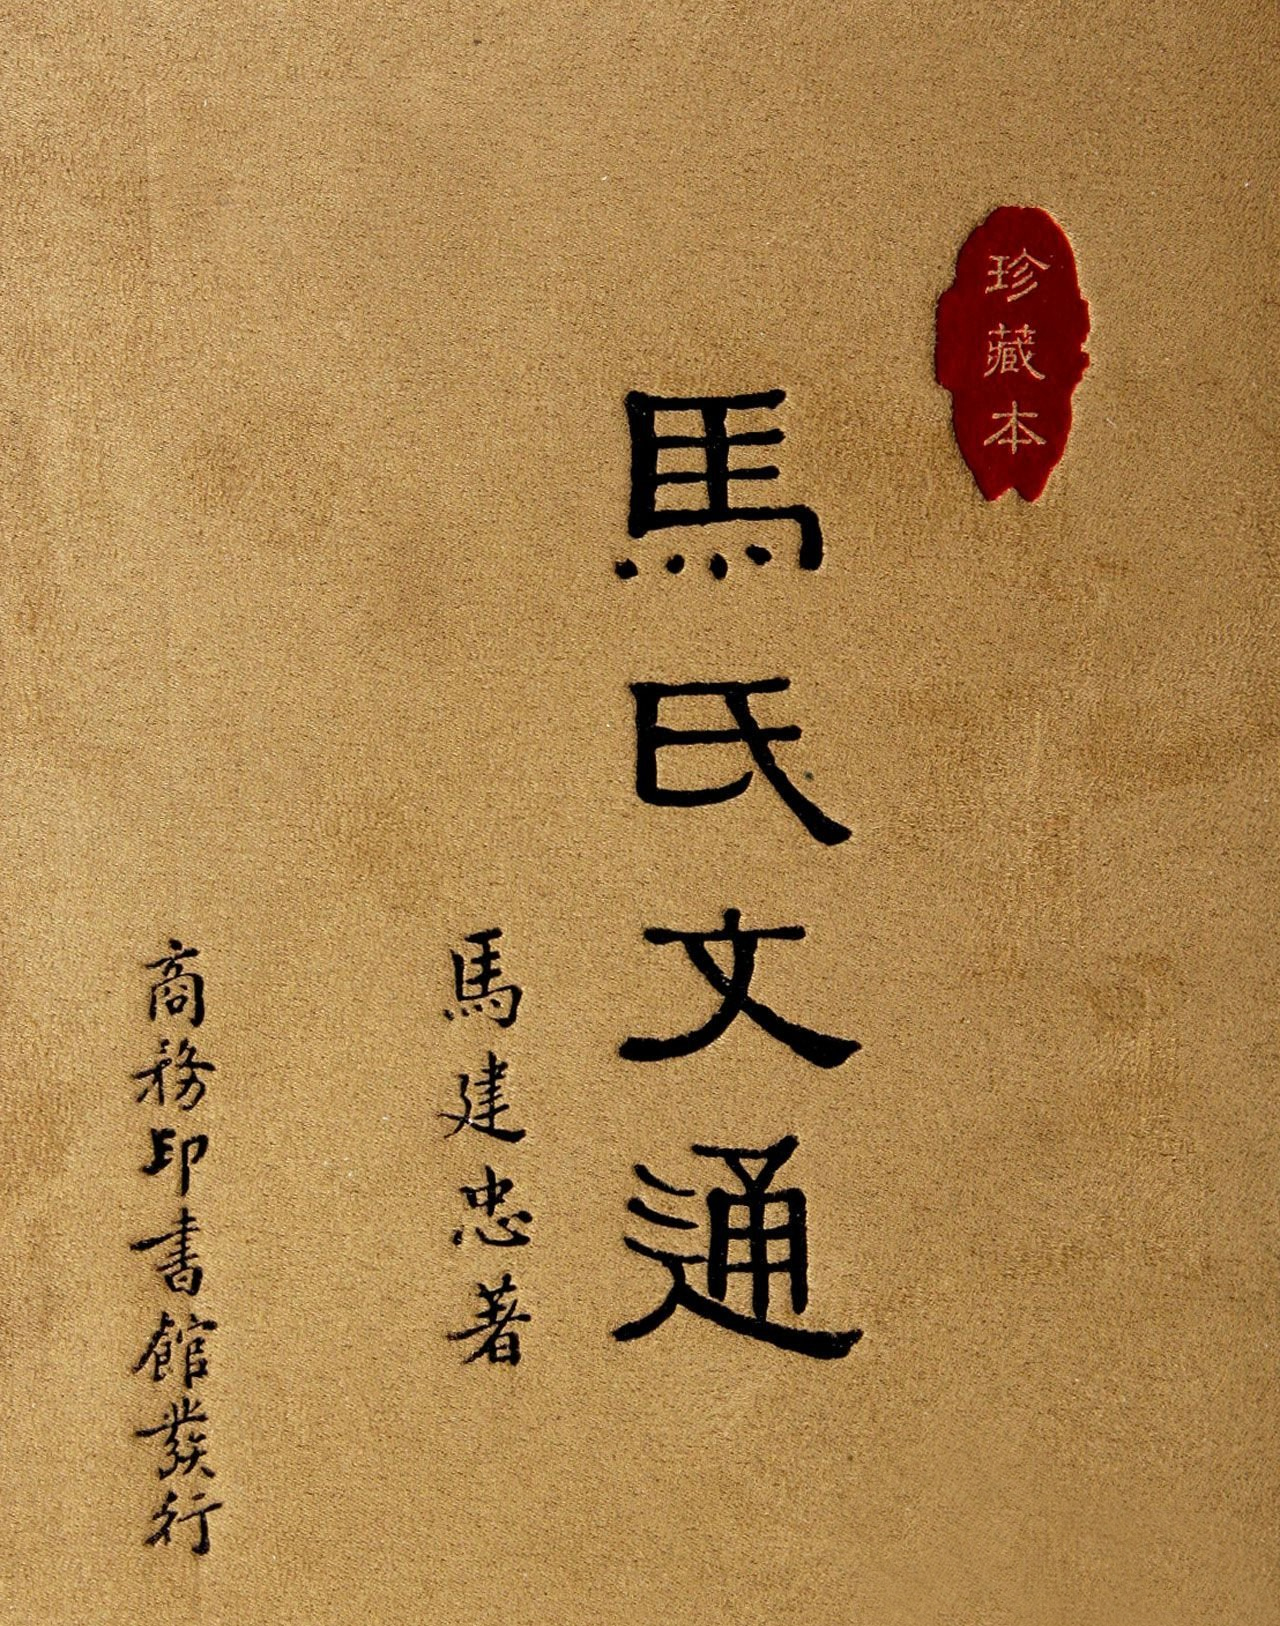 珍藏本
馬氏文通
馬建忠著
商務印書館發行